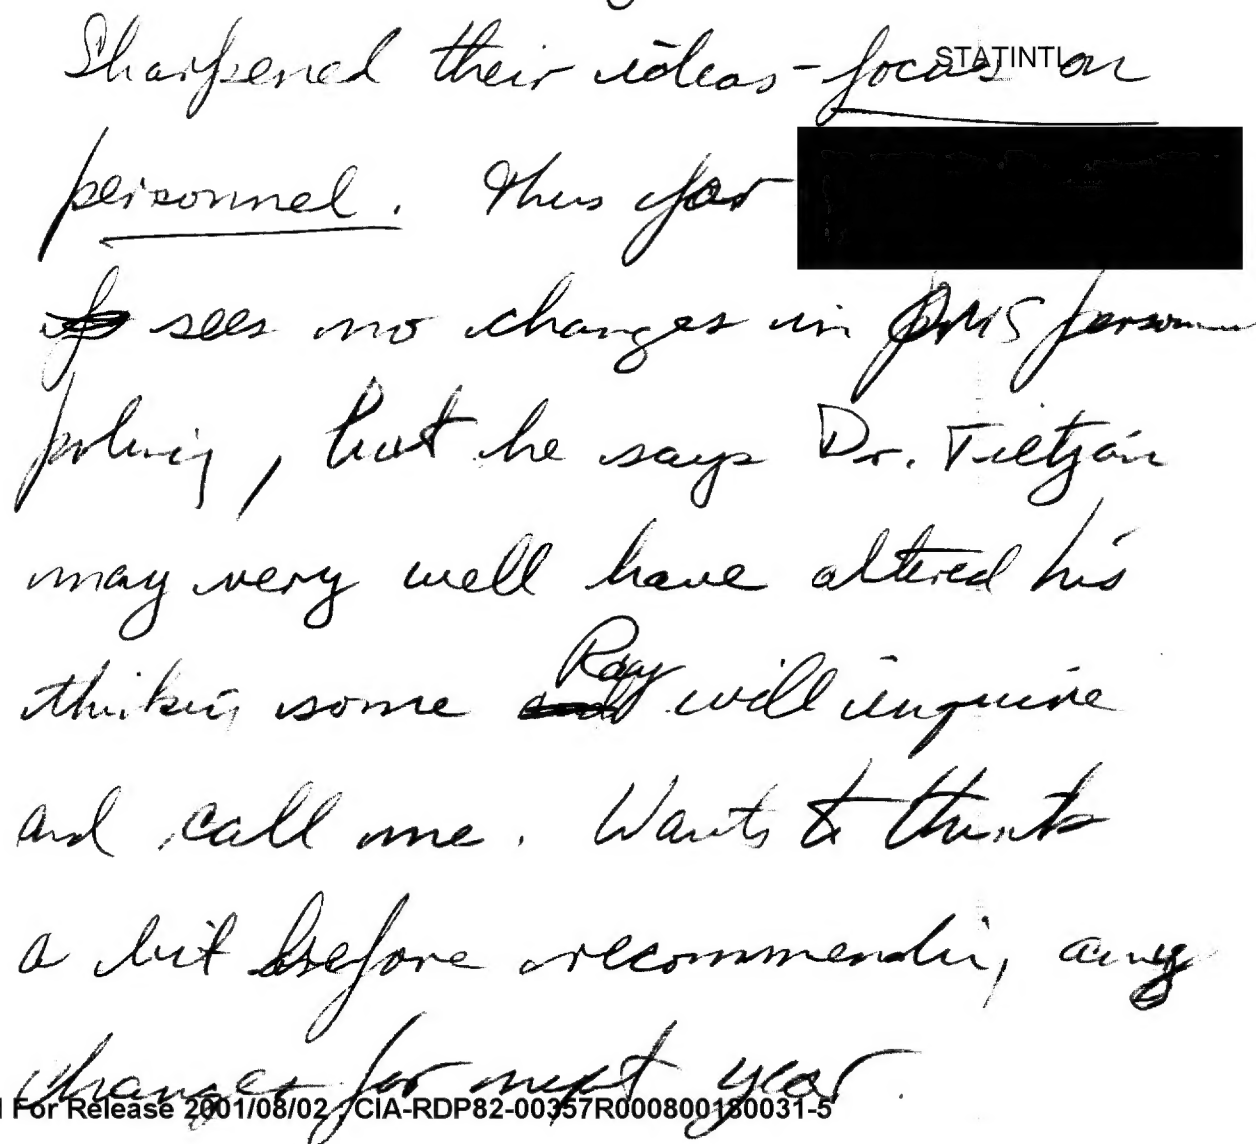 STATINTL
Sharpened their ideas - focus on
personnel. Thus far
sees no changes in OMS person
policy, but he says Dr. Tietjen
may very well have altered his
thinking some Ray will inquire
and call me. Wants to think
a bit before recommending any
changes for next year.
For Release 2001/08/02 : CIA-RDP82-00357R000800180031-5